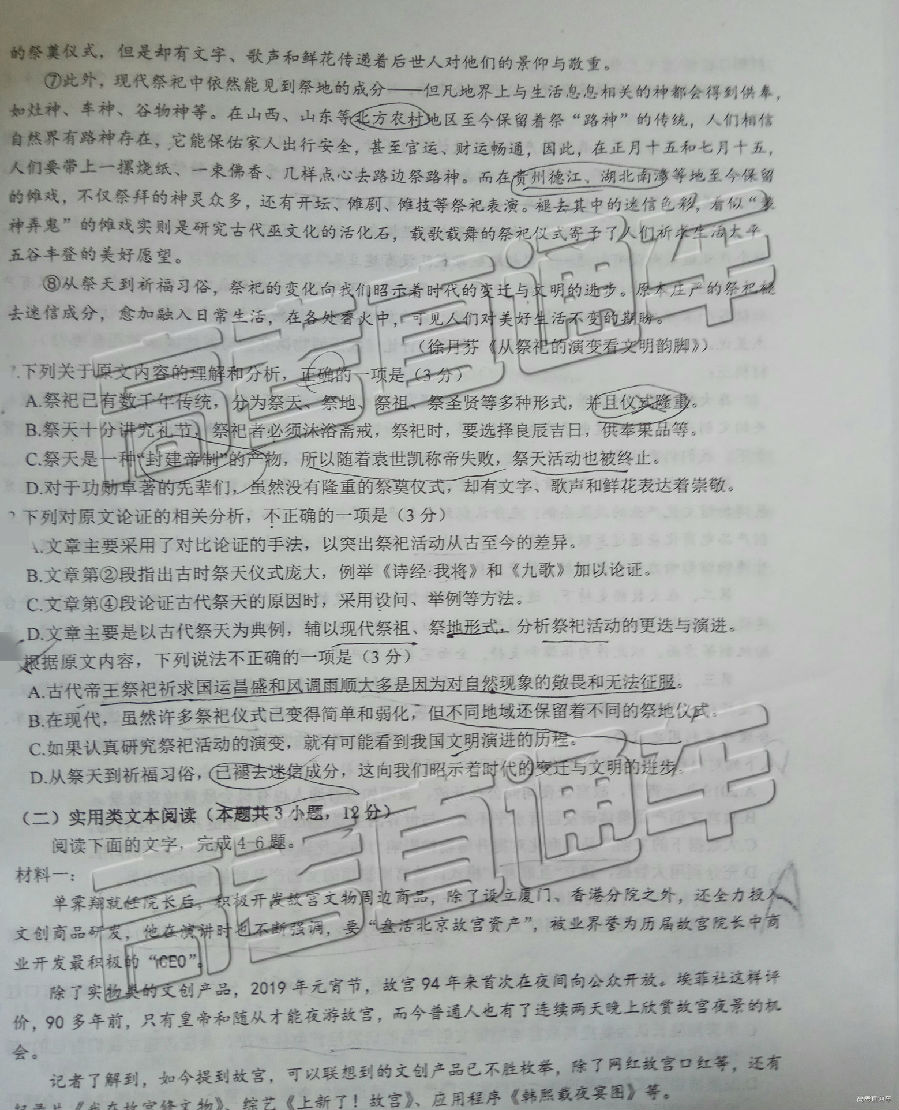 的祭奠仪式，但是却有文字、歌声和鲜花传递着后世人对他们的景仰与敬重。
⑦此外，现代祭祀中依然能见到祭地的成分——但凡地界上与生活息息相关的神都会得到供奉，
如灶神、车神、谷物神等。在山西、山东等北方农村地区至今保留着祭“路神”的传统，人们相信
自然界有路神存在，它能保佑家人出行安全，甚至官运、财运畅通，因此，在正月十五和七月十五，
人们要带上一摞烧纸、一束佛香、几样点心去路边祭路神。而在贵州德江、湖北南漳等地至今保留
的傩戏，不仅祭拜的神灵众多，还有开坛、傩剧、傩技等祭祀表演。褪去其中的迷信色彩，看似“装
神弄鬼”的傩戏实则是研究古代巫文化的活化石，载歌载舞的祭祀仪式寄予了人们祈求生活太平、
五谷丰登的美好愿望。
⑧从祭天到祈福习俗，祭祀的变化向我们昭示着时代的变迁与文明的进步。原本庄严的祭祀褪
去迷信成分，愈加融入日常生活，在各处香火中，可见人们对美好生活不变的期盼。
（徐月芬《从祭祀的演变看文明韵脚》）
下列关于原文内容的理解和分析，正确的一项是（3 分）
A.祭祀已有数千年传统，分为祭天、祭地、祭祖、祭圣贤等多种形式，并且仪式隆重。
B.祭天十分讲究礼节，祭祀者必须沐浴斋戒，祭祀时，要选择良辰吉日，供奉果品等。
C.祭天是一种“封建帝制”的产物，所以随着袁世凯称帝失败，祭天活动也被终止。
D.对于功勋卓著的先辈们，虽然没有隆重的祭奠仪式，却有文字、歌声和鲜花表达着崇敬。
下列对原文论证的相关分析，不正确的一项是（3 分）
A.文章主要采用了对比论证的手法，以突出祭祀活动从古至今的差异。
B.文章第②段指出古时祭天仪式庞大，例举《诗经·我将》和《九歌》加以论证。
C.文章第④段论证古代祭天的原因时，采用设问、举例等方法。
D.文章主要是以古代祭天为典例，辅以现代祭祖、祭地形式，分析祭祀活动的更迭与演进。
根据原文内容，下列说法不正确的一项是（3 分）
A.古代帝王祭祀祈求国运昌盛和风调雨顺大多是因为对自然现象的敬畏和无法征服。
B.在现代，虽然许多祭祀仪式已变得简单和弱化，但不同地域还保留着不同的祭地仪式。
C.如果认真研究祭祀活动的演变，就有可能看到我国文明演进的历程。
D.从祭天到祈福习俗，已褪去迷信成分，这向我们昭示着时代的变迁与文明的进步。
（二）实用类文本阅读（本题共 3 小题，12 分）
阅读下面的文字，完成 4-6 题。
材料一：
单霁翔就任院长后，积极开发故宫文物周边商品，除了设立厦门、香港分院之外，还全力投入
文创商品研发，他在演讲时也不断强调，要“盘活北京故宫资产”，被业界誉为历届故宫院长中商
业开发最积极的“CEO”。
除了实物类的文创产品，2019 年元宵节，故宫 94 年来首次在夜间向公众开放。埃菲社这样评
价，90 多年前，只有皇帝和随从才能夜游故宫，而今普通人也有了连续两天晚上欣赏故宫夜景的机
会。
记者了解到，如今提到故宫，可以联想到的文创产品已不胜枚举，除了网红故宫口红等，还有
纪录片《我在故宫修文物》、综艺《上新了！故宫》、应用程序《韩熙载夜宴图》等。
高考直通车
高考直通车